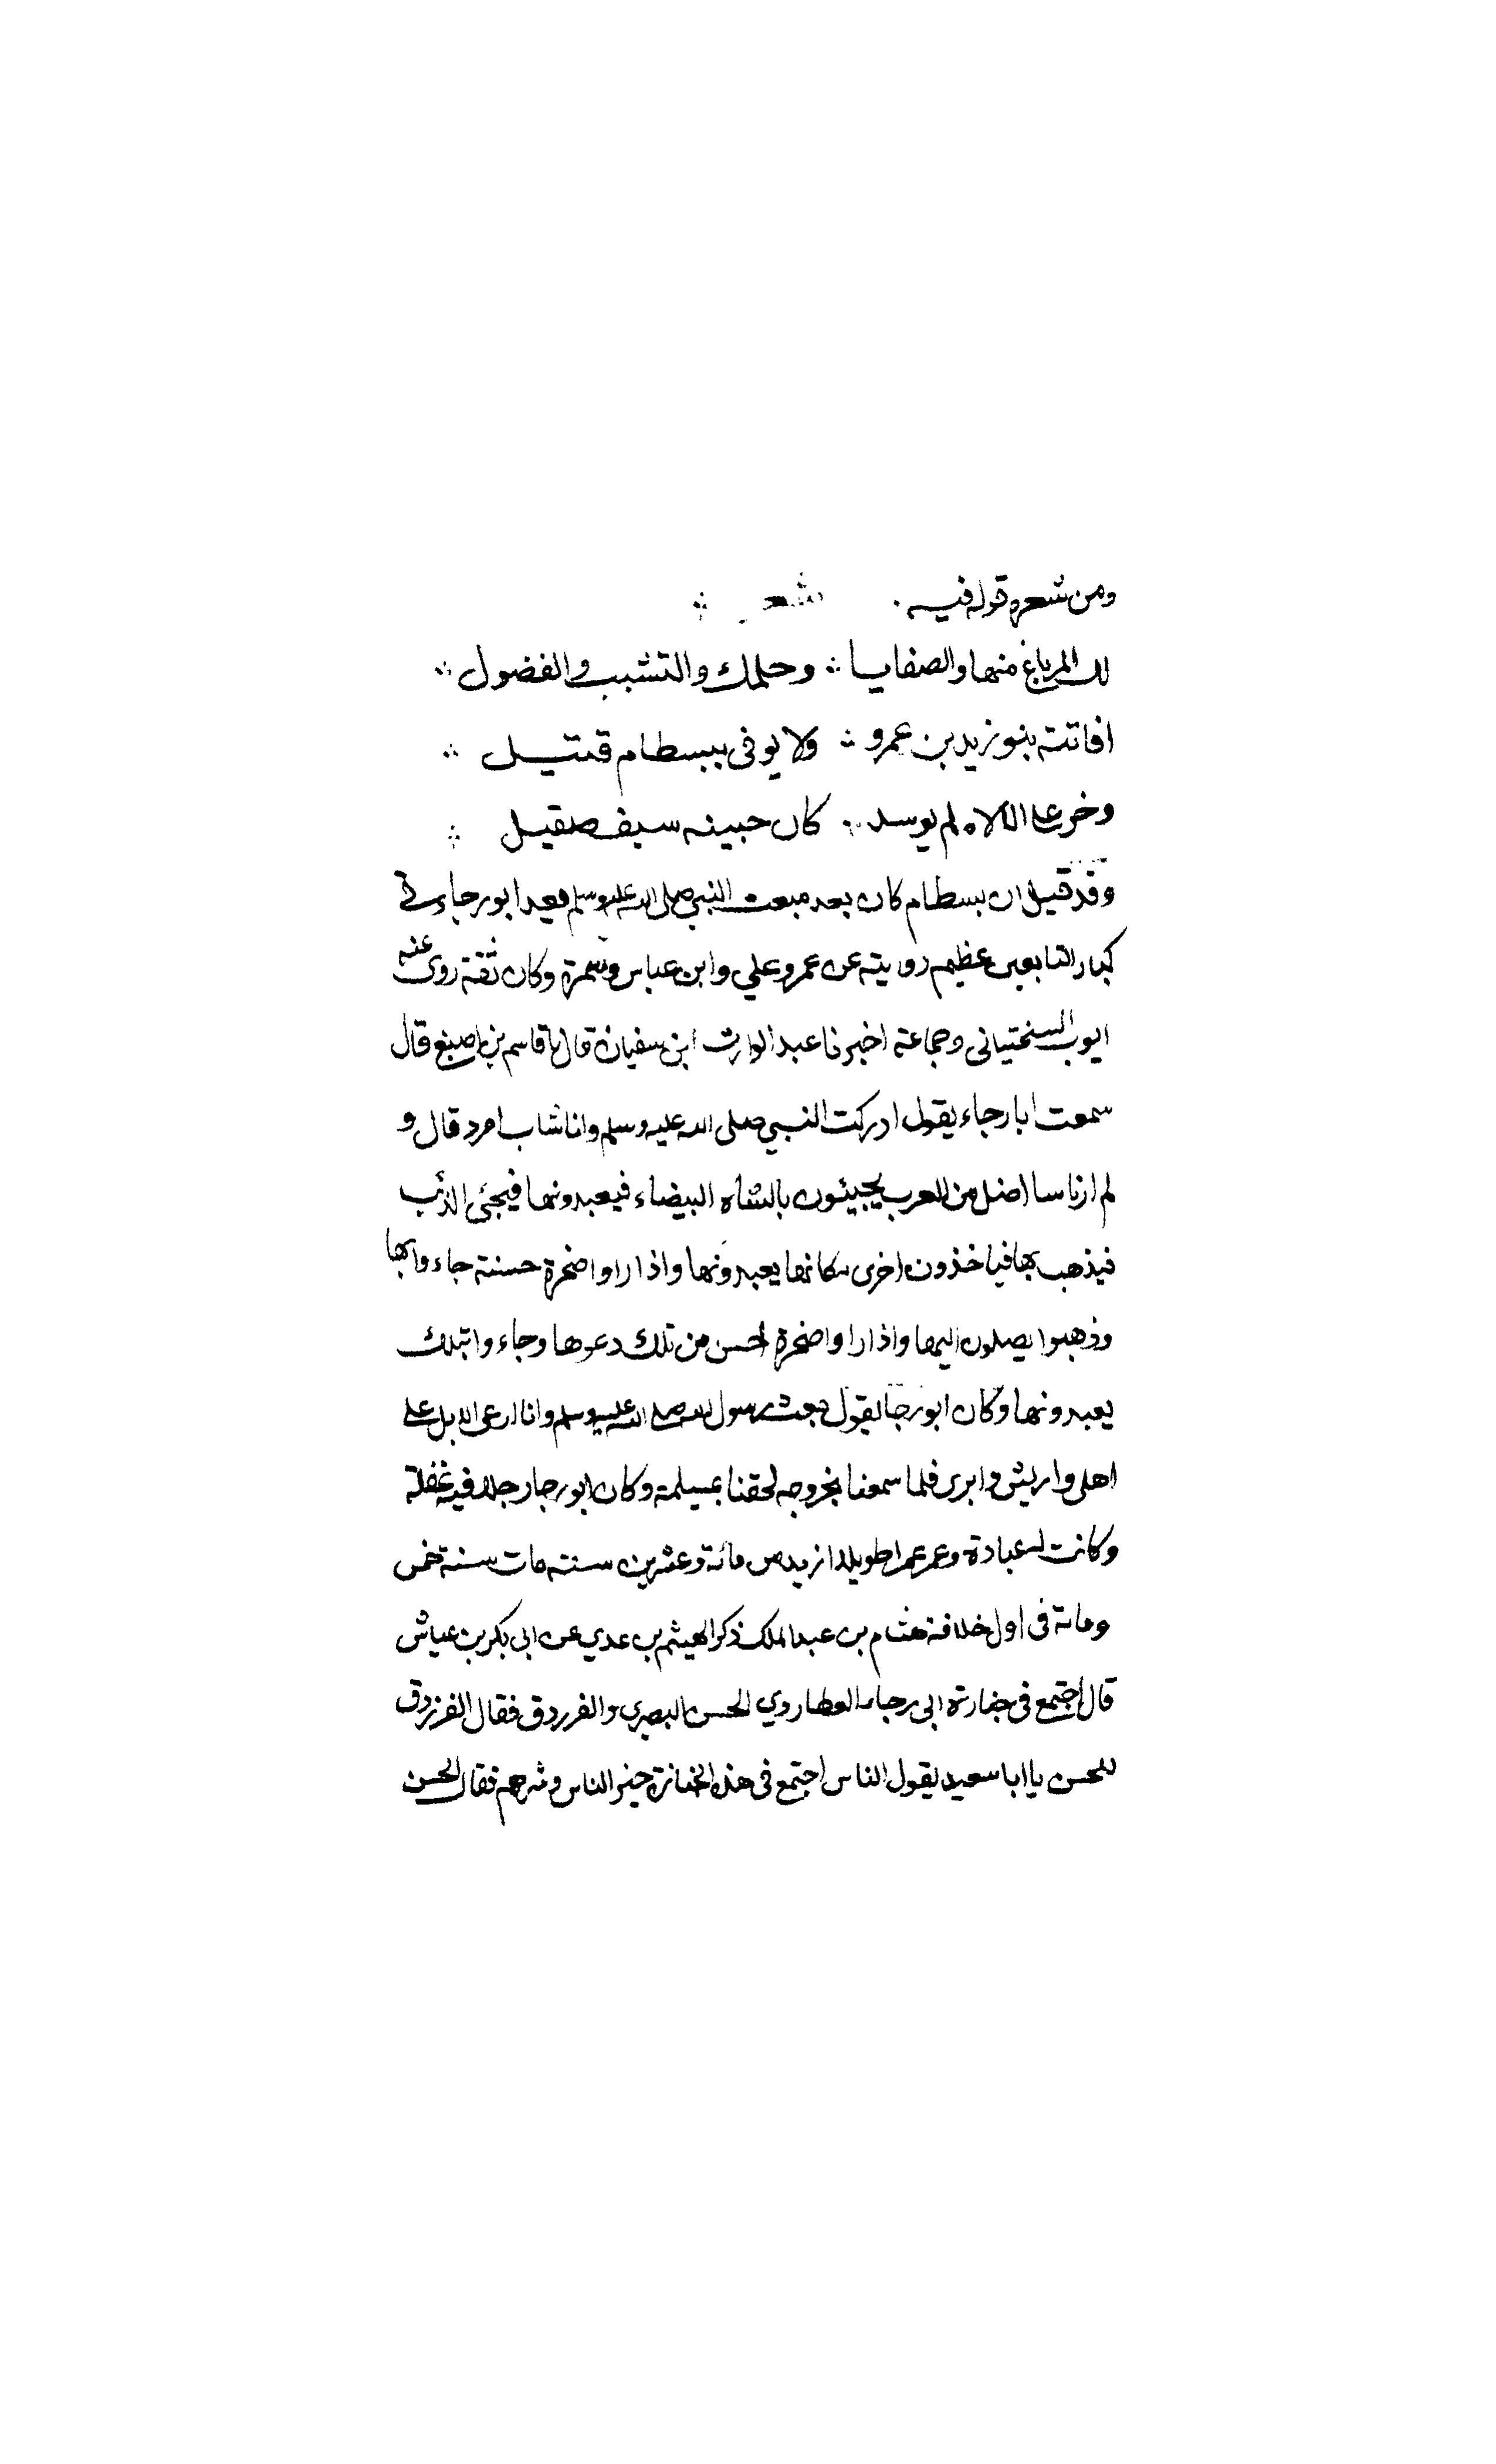 ومن شعره قوله فيه شعر
لك المرباع منها والصفايا وحلمك والتشبب والفضول
افاتته بنو زيد بن عمرو ولا يوفى ببسطام قتيل
وخر على الالاه لم يوسد كان جبينه سيف صقيل
وقد قيل ان بسطام كان بعد مبعث النبي صلى الله عليه وسلم يعد ابو رجاء في
كبار التابعين عظيم روايته عن عمر وعلي وابن عباس وسمرة وكان ثقة روى عنه
ايوب السختياني وجماعة اخبرنا عبد الوارث ابن سفيان قال نا قاسم بن اصبغ قال
سمعت ابا رجاء يقول ادركت النبي صلى الله عليه وسلم وانا شاب امرد قال و
لم ار ناسا اضل من العرب يجيئون بالشاه البيضاء فيعبدونها فيجئ الذئب
فيذهب بها فياخذون اخرى مكانها يعبدونها واذا راوا صخرة حسنة جاءوا بها
وذهبوا يصلون اليها واذا راوا صخرة احسن من تلك دعوها وجاءوا بتلك
يعبدونها وكان ابو رجا يقول بعث رسول الله صلى الله عليه وسلم وانا ارعى الابل على
اهلى واريش وابرى فلما سمعنا بخروجه لحقنا بمسيلمة وكان ابو رجا رجلا فيه غفلة
وكانت له عبادة وعمر عمرا طويلا ازيد من مائة وعشرين سنة مات سنة خمس
ومائة في اول خلافة هشام بن عبد الملك ذكر الهيثم بن عدي عن ابى بكر بن عياش
قال اجتمع في جنازة ابى رجاء العطاردي الحسن البصري والفرزدق فقال الفرزدق
للحسن يا ابا سعيد يقول الناس اجتمع في هذه الجنازة خير الناس وشرهم فقال الحسن